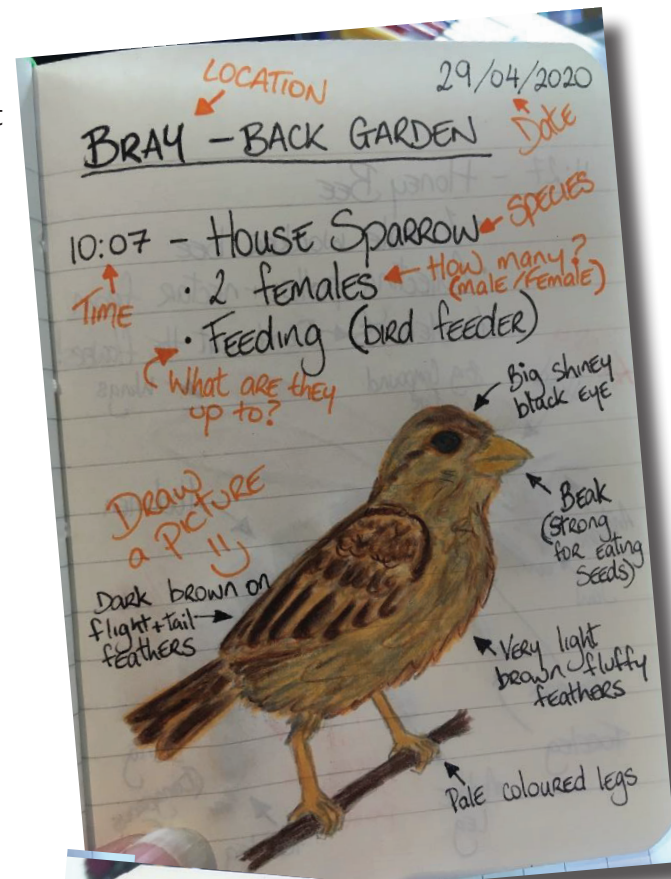 29/04/2020
LOCATION
Date
BRAY – BACK GARDEN
10:07 – HOUSE SPARROW
SPECIES
TIME
• 2 females
How many?
(male/Female)
• FEEDING (bird feeder)
What are they
up to?
Big shiney
black eye
Draw
a Picture
Beak
(strong
for eating
seeds)
Dark brown on
flight + tail
feathers
Very light
brown fluffy
feathers
Pale coloured legs